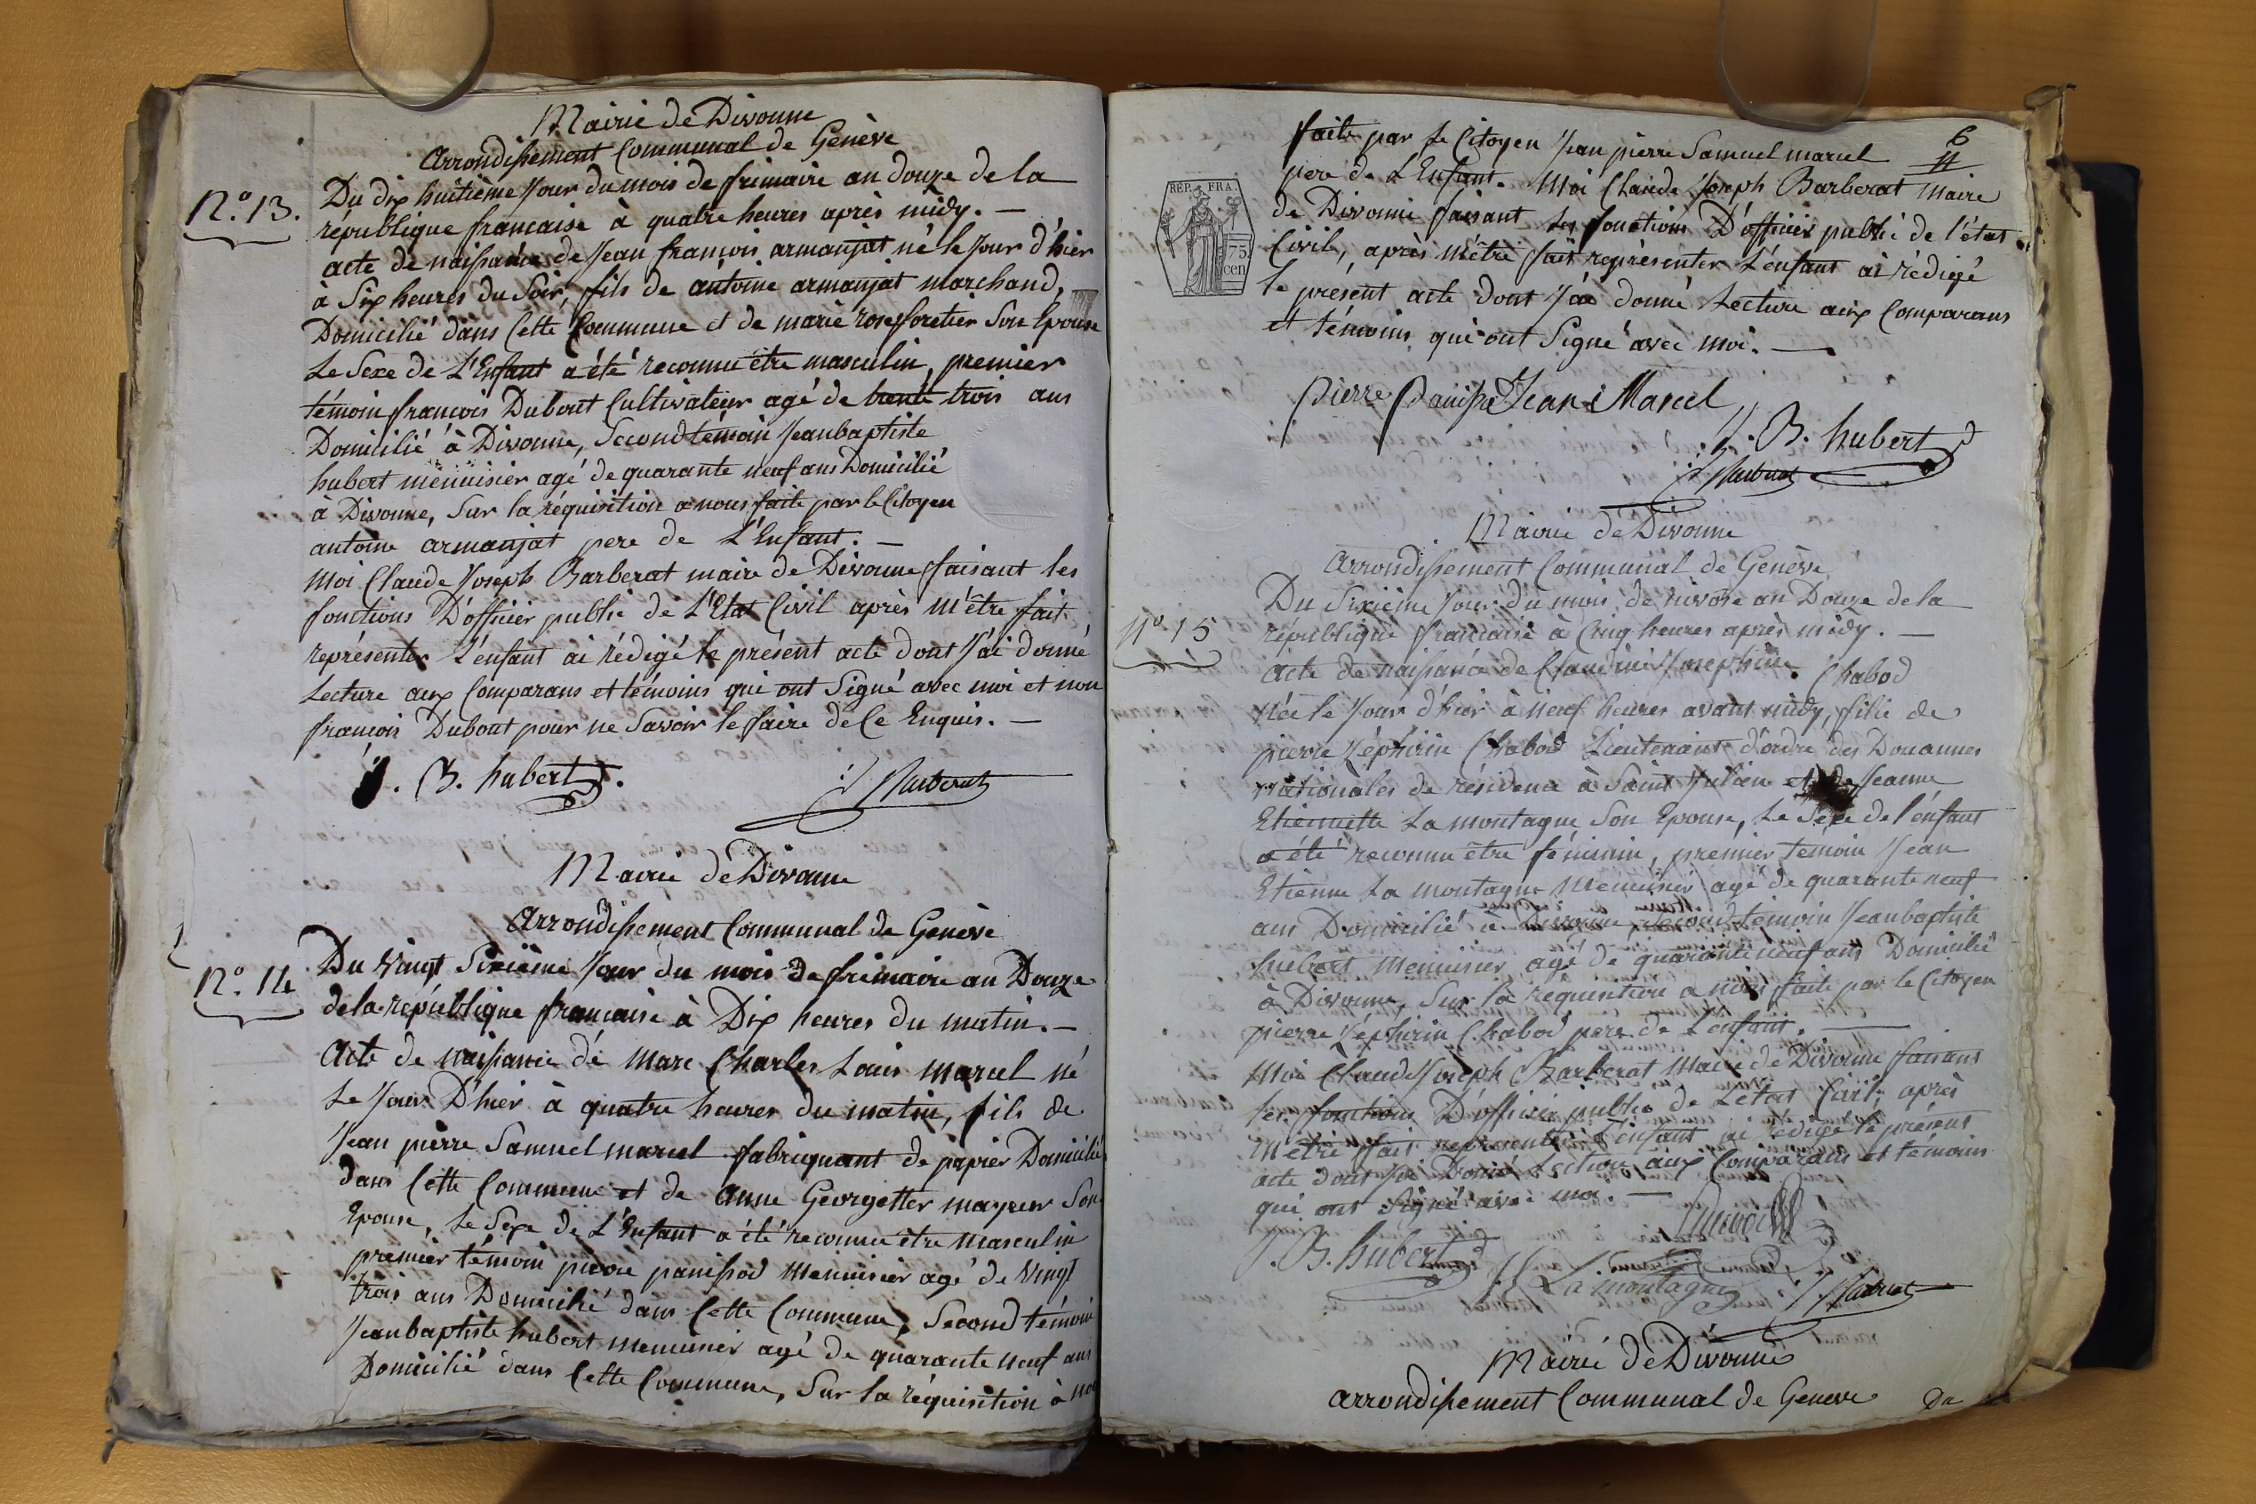 Mairie de Divonne
Arrondissement Communal de Genève
N.º 13.
Du dix huitième Jour du mois de frimaire an douze de la
république francaise à quatre heures après midy. —
acte de naissance de Jean francois armanjat né le Jour d'hier
à Six heures du Soir, fils de antoine armanjat marchand,
Domicilié dans Cette Commune et de marie rose foretier Son Epouse
Le Sexe de L'Enfant a été reconnu être masculin, premier
témoin francois Dubout Cultivateur agé de trente trois ans
Domicilié à Divonne, Second témoin Jeanbaptiste
hubert menuisier agé de quarante neuf ans Domicilié
à Divonne, Sur la réquisition a nous faite par le Citoyen
antoine armanjat pere de L'Enfant. —
Moi Claude Joseph Barberat maire de Divonne faisant les
fonctions D'officier public de L'Etat Civil après M'être fait
représenter L'enfant ai rédigé le présent acte dont J'ai donné
Lecture aux Comparans et témoins qui ont Signé avec moi et non
francois Dubout pour ne Savoir le faire de Ce Enquis. —
J. B. hubert
Barberat
Mairie de Divonne
Arrondissement Communal de Genève
N.º 14
Du Vingt Sixième Jour du mois de frimaire an Douze
de la république francaise à Dix heures du matin. —
Acte de naissance de Marc Charles Louis Marcel né
Le Jour D'hier à quatre heures du matin, fils de
Jean pierre Samuel marcel fabriquant de papier Domicilié
dans Cette Commune et de Anne Georgette Son
Epouse, Le Sexe de L'Enfant a été reconnu être Masculin
premier témoin pierre panissod Menuisier agé de Vingt
trois ans Domicilié dans Cette Commune, Second témoin
Jeanbaptiste hubert menuisier agé de quarante neuf ans
Domicilié dans Cette Commune, Sur la réquisition à nous
6
faite par Le Citoyen Jean pierre Samuel marcel
pere de L'Enfant. Moi Claude Joseph Barberat Maire
de Divonne faisant les fonctions D'officier public de l'état
Civil, après M'être fait représenter L'enfant ai rédigé
le présent acte dont J'ai donné Lecture aux Comparans
et témoins qui ont Signé avec moi. —
REP. FRA.
75
cen
Pierre Panissod Jean Marcel
J. B. hubert
Barberat
Mairie de Divonne
Arrondissement Communal de Genève
Nº 15
Du Sixième Jour du mois de nivose an Douze de la
république francaise à Cinq heures après midy. —
Acte de naissance de Claudine Josephine Chabod
Née le Jour d'hier à neuf heures avant midy, fille de
pierre Zéphirin Chabod Lieutenant d'ordre des Douannes
nationales de résidence à Saint Julien et de Jeanne
Etiennette La montagne Son Epouse, Le Sexe de l'énfant
a été reconnu être féminin, premier témoin Jean
Etienne La montagne Menuisier agé de quarante neuf
ans Domicilié à Divonne, Second témoin Jeanbaptiste
hubert Menuisier agé de quarante neuf ans Domicilié
à Divonne, Sur la requisition a nous faite par le Citoyen
pierre Zéphirin Chabod pere de L'enfant. —
Moi Claude Joseph Barberat Maire de Divonne faisant
les fonctions D'officier public de L'état Civil, après
M'être fait représenter L'enfant ai rédigé le présent
acte dont J'ai Donné Lecture aux Comparans et témoins
qui ont Signé avec moi. —
J. B. hubert
La montagne
Barberat
Mairie de Divonne
arrondissement Communal de Geneve
Du